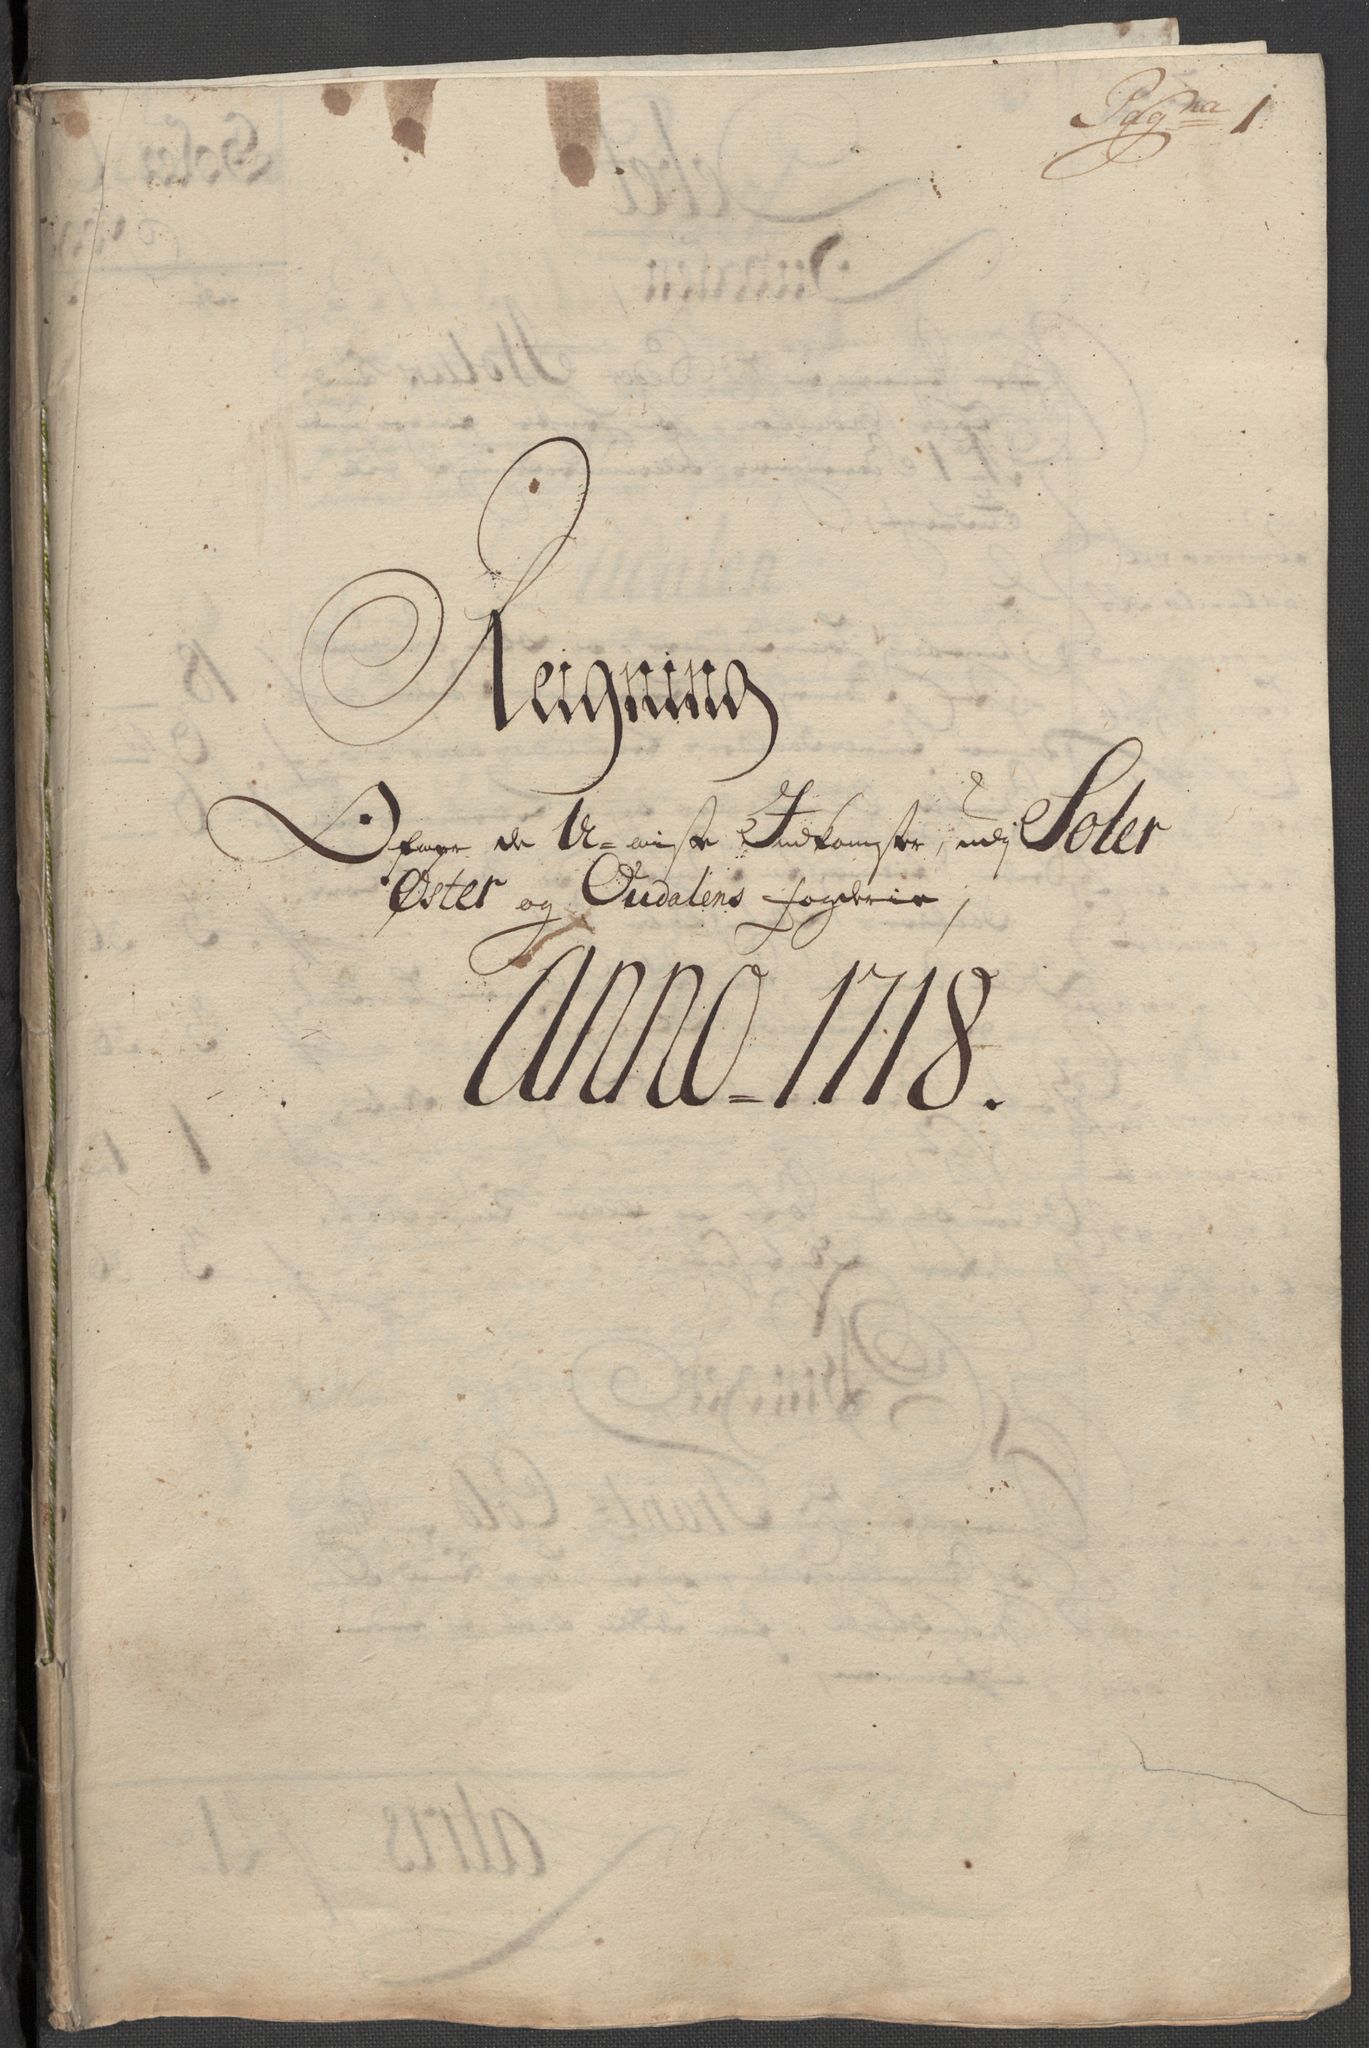 Pagna 1
Reigning
Ofver de U=wiste Indkomster, udj Soler
Øster og Oudalens fogderie,
Anno=1718.